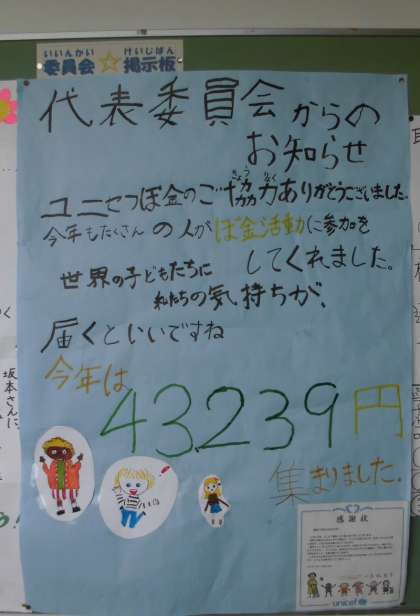 いいんかい けいじばん
委員会☆掲示板
代表委員会からの
お知らせ
ユニセフぼ金のご協力ありがとうございました。
きょう りょく
今年もたくさんの人がぼ金活動に参加を
してくれました。
世界の子どもたちに
私たちの気持ちが、
届くといいですね
今年は
43239円
集まりました.
感謝状
unicef
坂本さんに